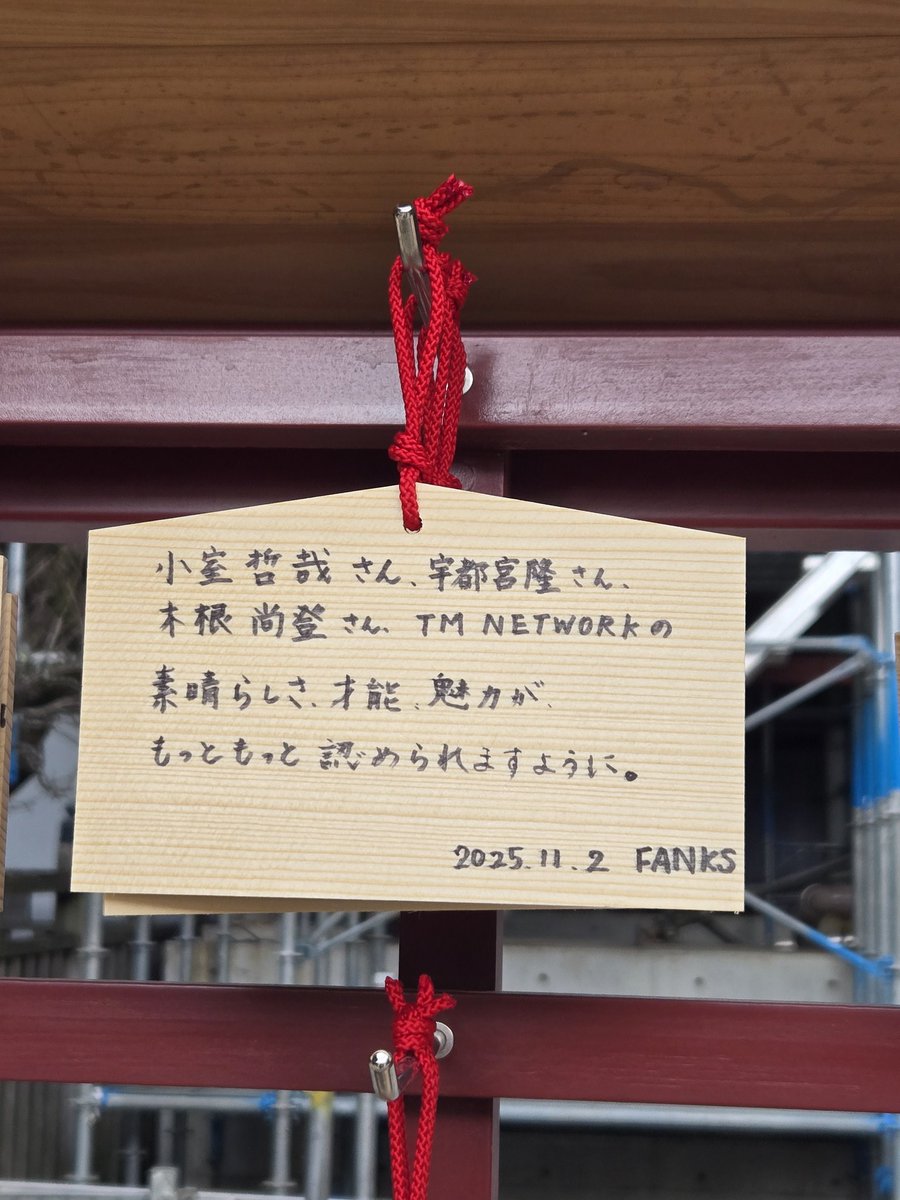 小室哲哉さん、宇都宮隆さん、
木根尚登さん、TM NETWORKの
素晴らしさ、才能、魅力が、
もっともっと認められますように。
2025.11.2 FANKS